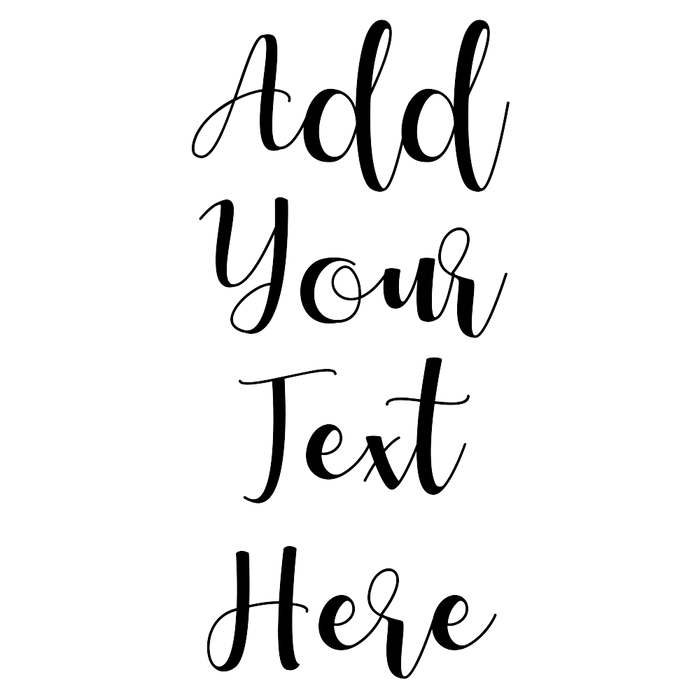 Add
Your
Text
Here